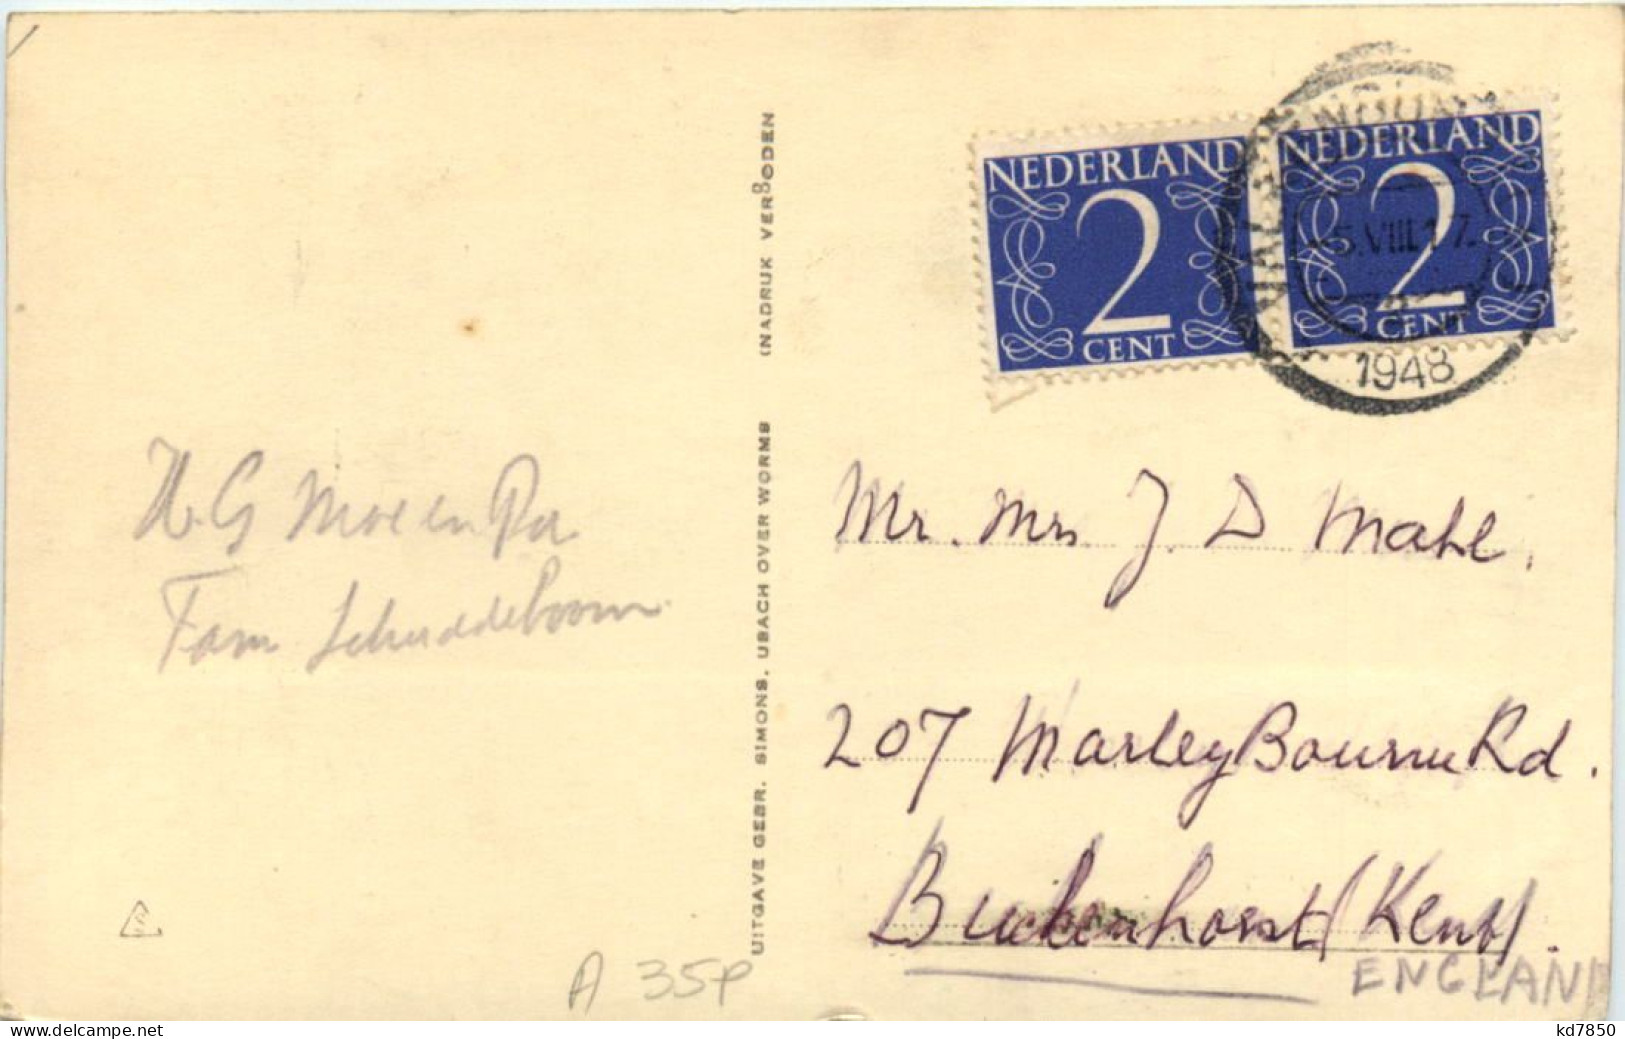 H.G Moe en Pa
Fam Schuddeboom
A 35P
UITGAVE GEBR. SIMONS, UBACH OVER WORMS (NADRUK VERBODEN
NEDERLAND
2
CENT
NEDERLAND
2
CENT
5.VIII.1 7.
1948
Mr. Mrs J. D Mahe.
207 MarleyBourne Rd.
Buckenhorst (Kent).
ENGLAND
www.delcampe.net
kd7850